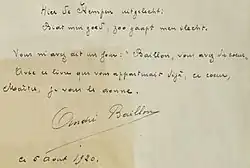 Hier de Kempen uitgelicht:
Bidt mij goed, zoo gaapt men slecht.
Vous m'avez dit un jour: "Baillon, vous avez du coeur,
Avec ce livre qui vous appartenait déjà, ce coeur,
Maître, je vous le donne.
André Baillon
ce 6 août 1920.